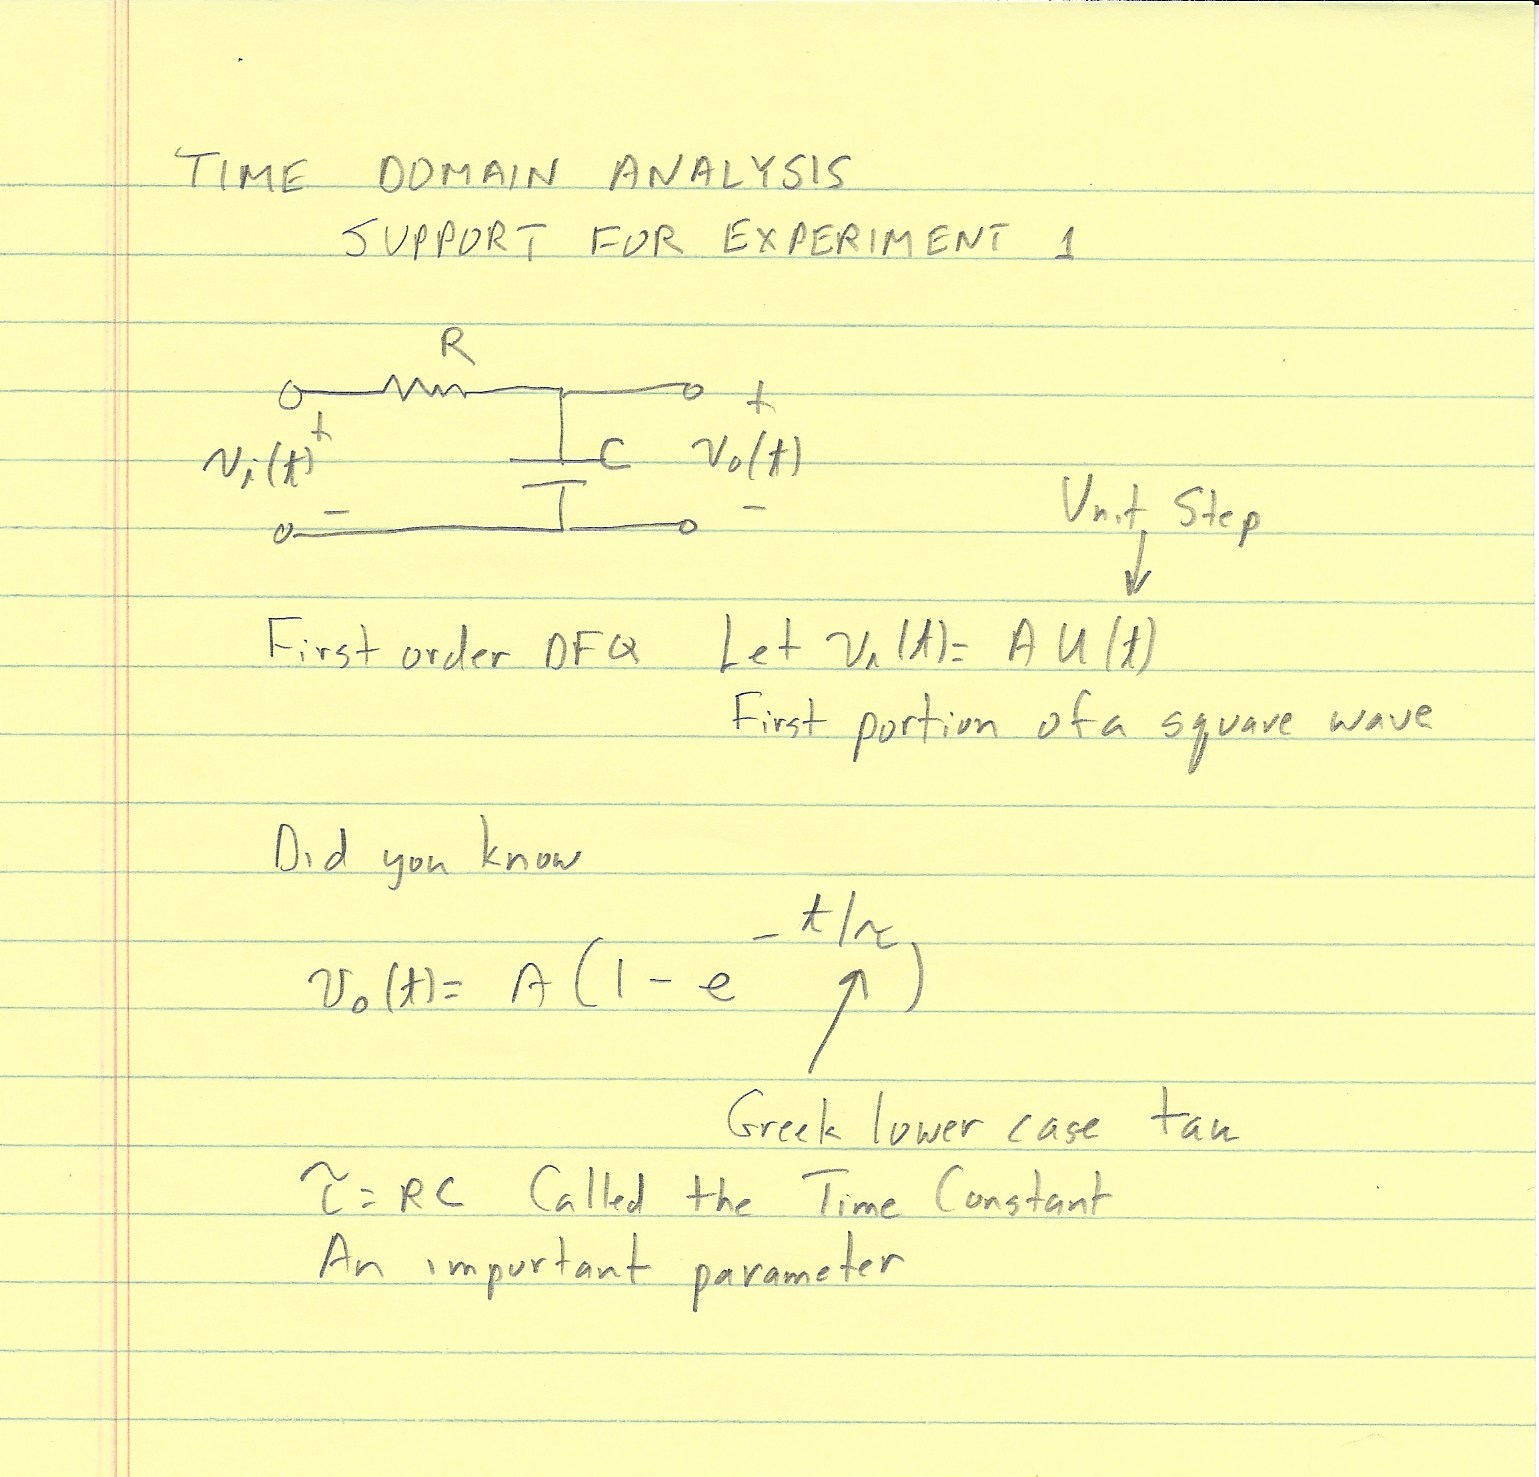 TIME DOMAIN ANALYSIS
SUPPORT FOR EXPERIMENT 1
R
+
+
vi(t)
C
vo(t)
-
-
Unit Step
↓
First order DFQ Let vi(t)= A U(t)
First portion of a square wave
Did you know
vo(t)= A(1-e^-t/τ)
Greek lower case tau
τ=RC Called the Time Constant
An important parameter